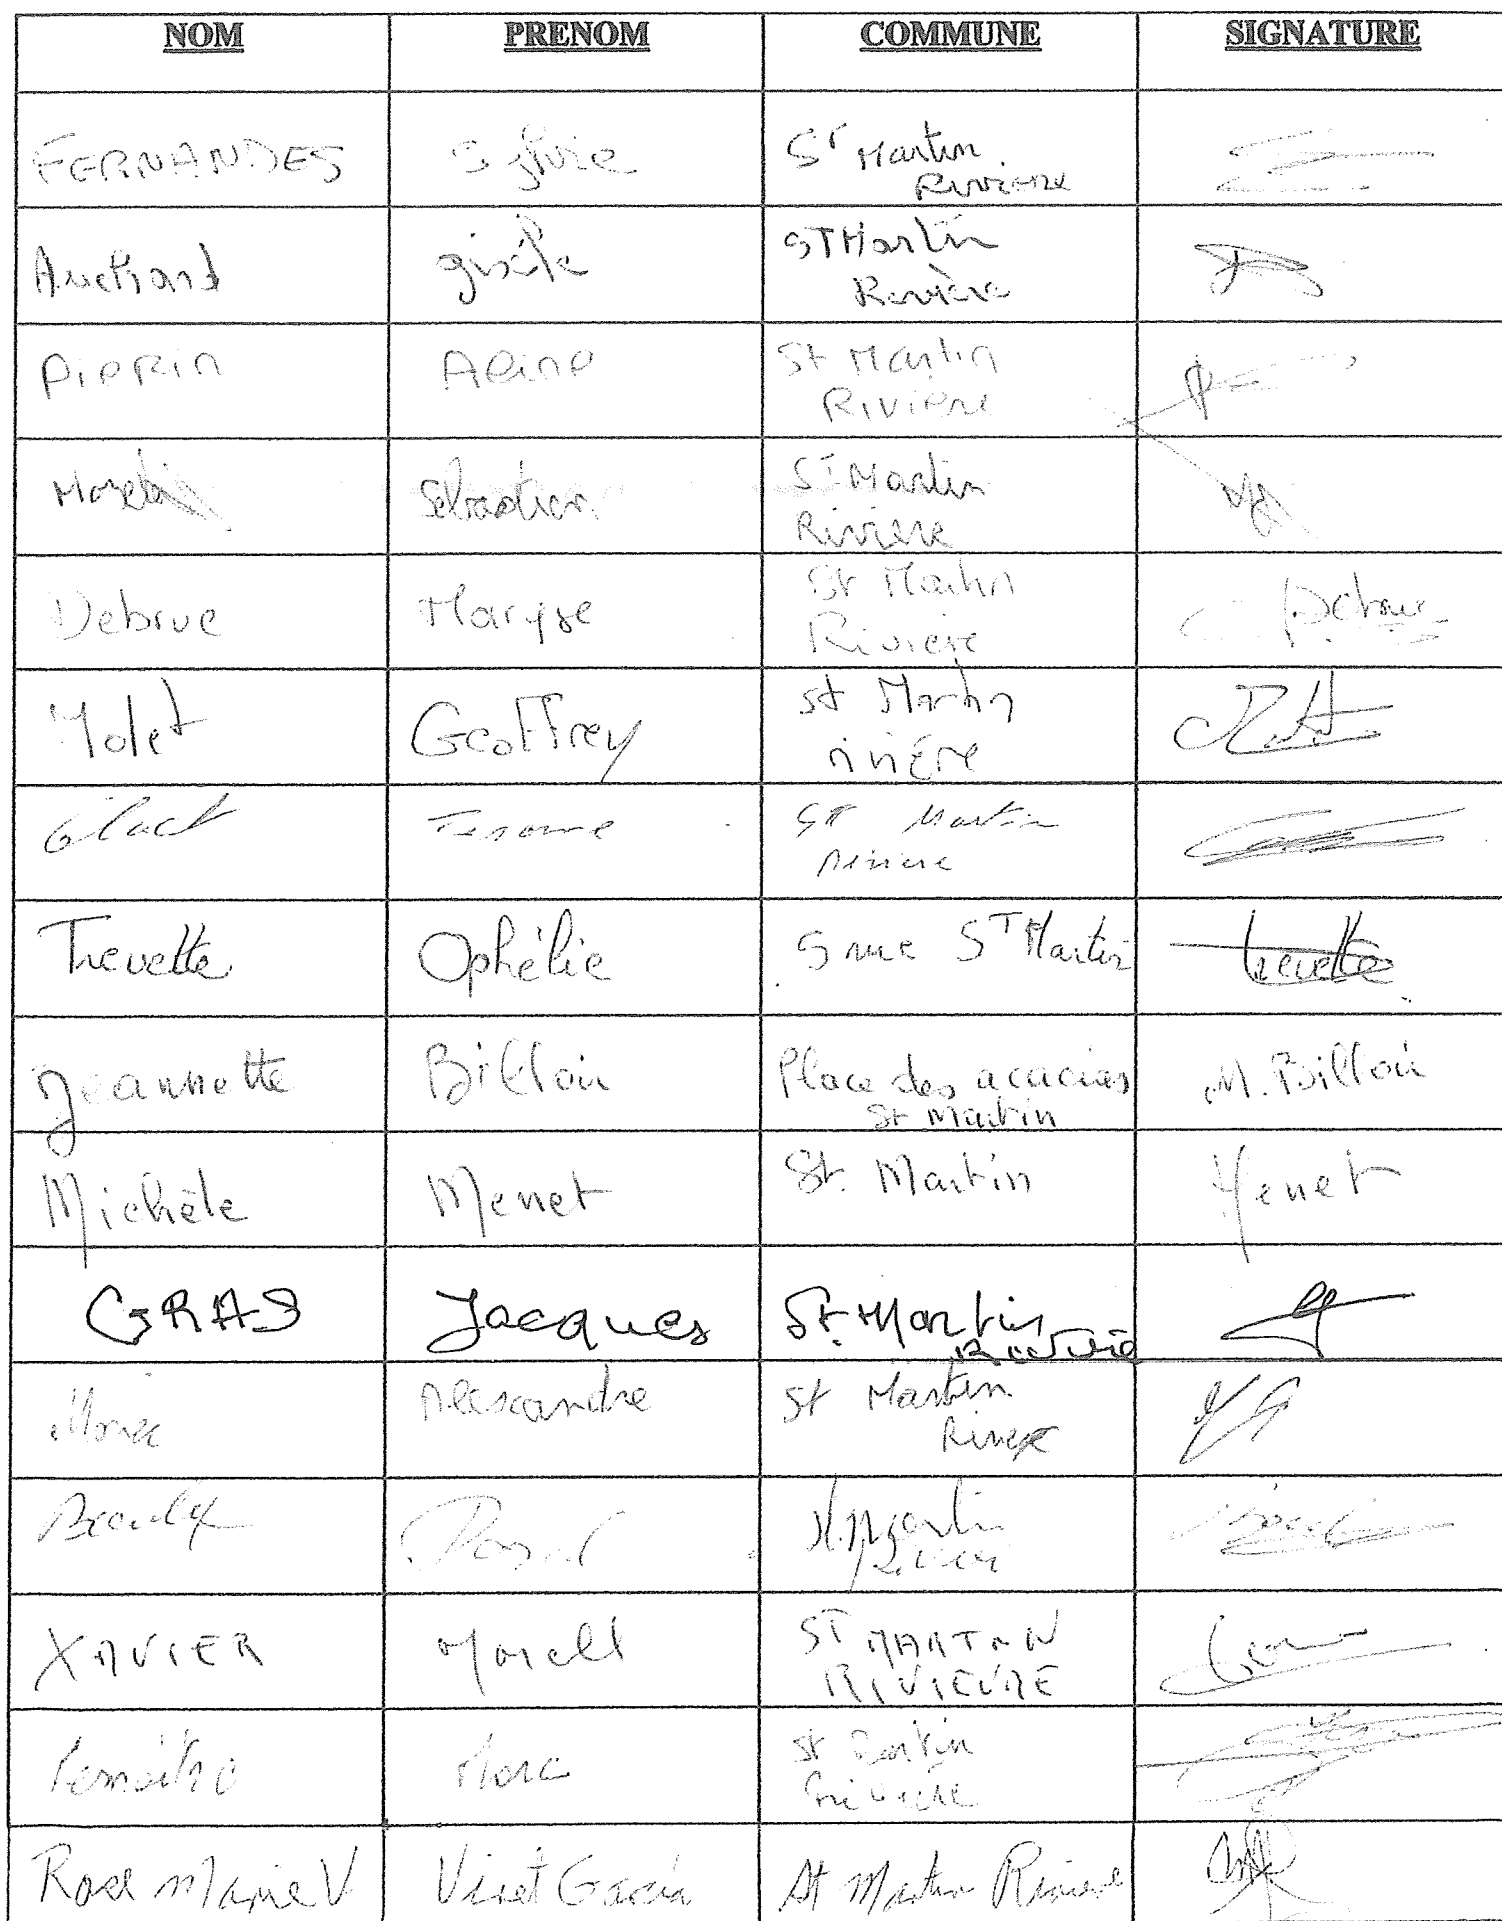 NOM PRENOM COMMUNE SIGNATURE
FERNANDES Sylvie St Martin
Rivière
Auchard gisèle ST Martin
Rivière
Pierrin Aline St Martin
RIVIERE
Sébastien ST Martin
Rivière
Debrue Maryse St Martin
Rivière
Molet Geoffrey st Martin
rivière
Glact Jerome ST Martin
rivière
Trevette Ophélie 5 rue ST Martin trevette
Jeannette Billoin Place des acacias M. Billoin
St Martin
Michèle Menet St. Martin Menet
GRAS Jacques St. Martin
Alexandre St Martin
St Martin
XAVIER Marcel ST MARTIN
RIVIEVRE
Lemaitre Marc st Martin
rivière
Rose Marie V Viret Garcia St Martin Riviere